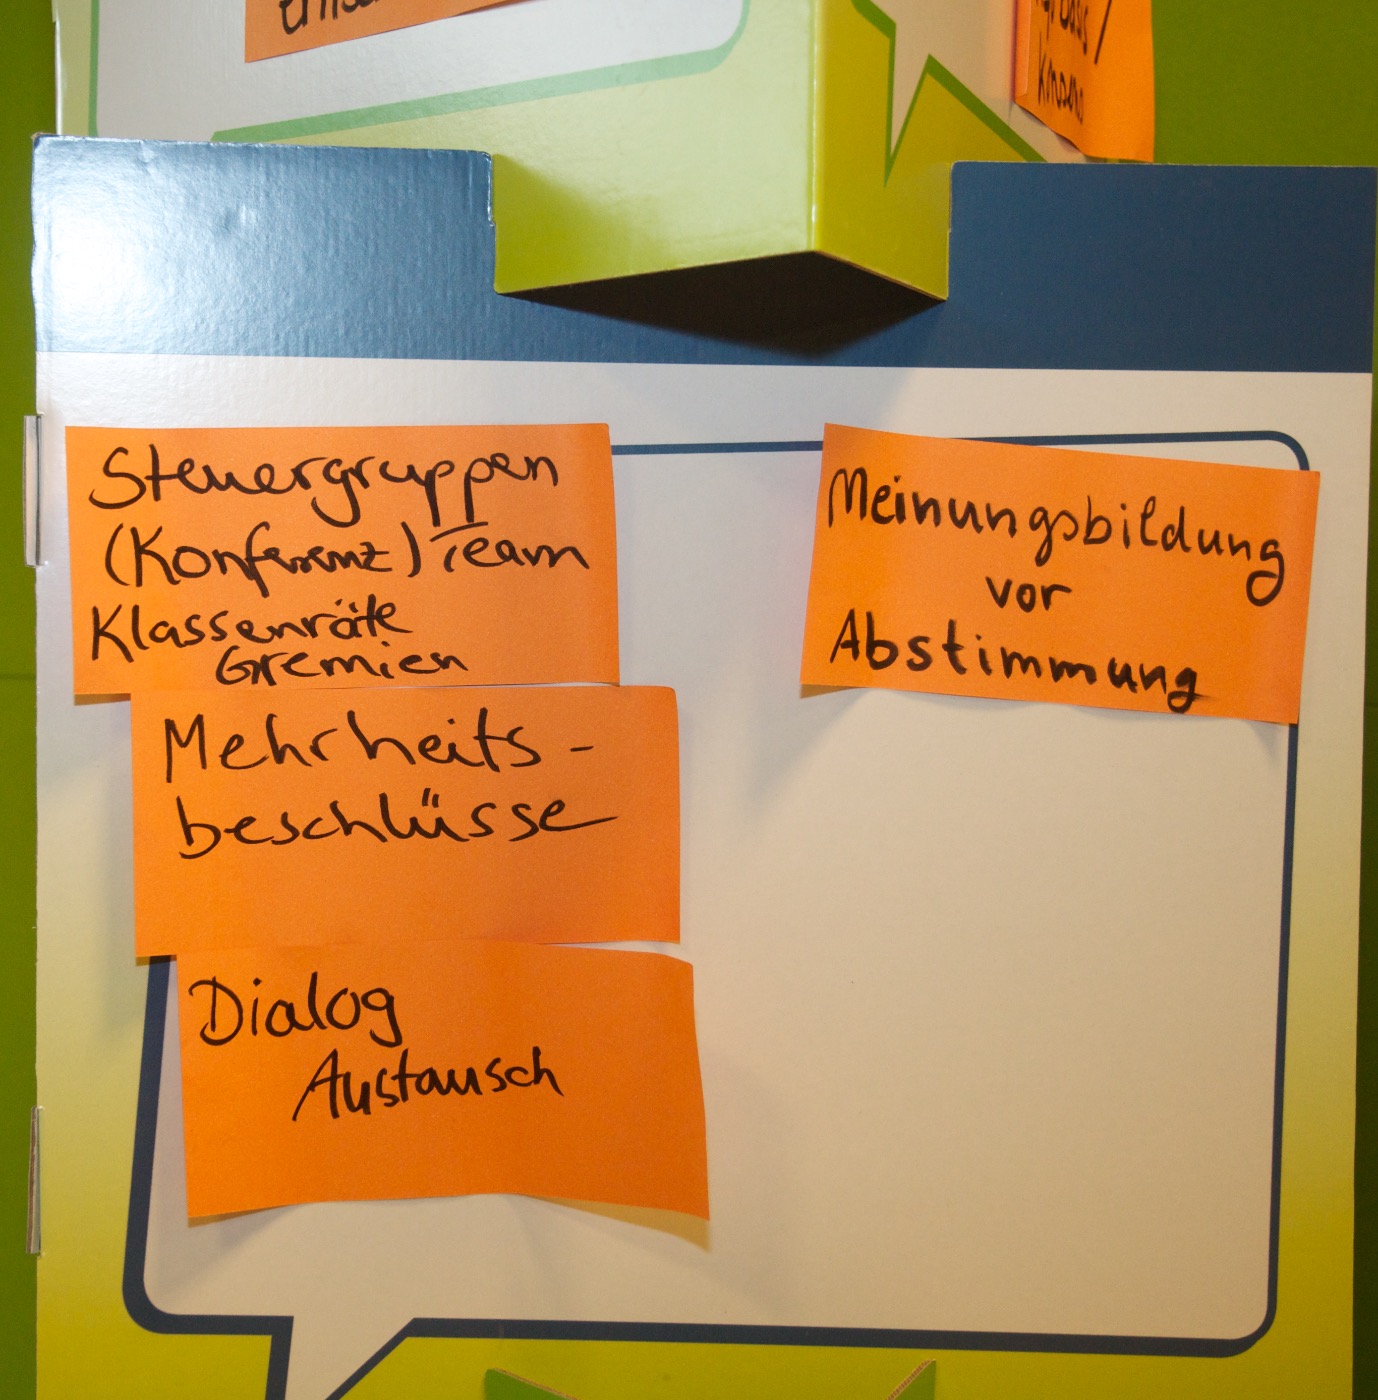 Konsens
Steuergruppen
(Konferenz) Team
Klassenräte
Gremien
Mehrheits-
beschlüsse
Dialog
Austausch
Meinungsbildung
vor
Abstimmung